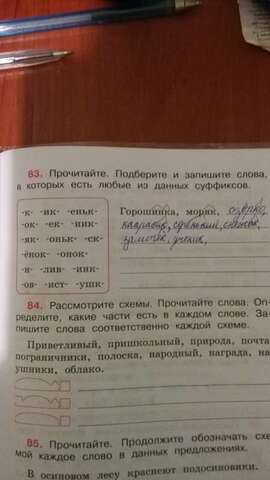 83. Прочитайте. Подберите и запишите слова,
в которых есть любые из данных суффиксов.
-к- -ик- -еньк-
-ок- -ек- -ник-
-як- -оньк- -ск-
-ёнок- -онок-
-н- -лив- -инк-
-ов- -ист- -ушк-
Горошинка, моряк,
замочек, ученик,
84. Рассмотрите схемы. Прочитайте слова. Оп-
ределите, какие части есть в каждом слове. За-
пишите слова соответственно каждой схеме.
Приветливый, пришкольный, природа, почта
пограничники, полоска, народный, награда, на
ушники, облако.
85. Прочитайте. Продолжите обозначать схе
мой каждое слово в данных предложениях.
В осиновом лесу краснеют подосиновики.